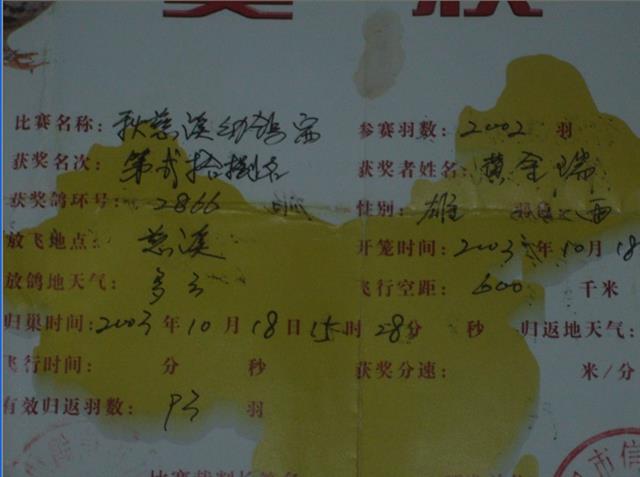 奖状
比赛名称：秋慈溪幼鸽赛 参赛羽数：2002 羽
获奖名次：第贰拾捌名 获奖者姓名：黄金瑞
获奖鸽环号：2866 性别：雄
放飞地点：慈溪 开笼时间：2003年10月18
放鸽地天气：多云 飞行空距：600 千米
归巢时间：2003年10月18日15时28分 秒 归返地天气：
飞行时间： 分 秒 获奖分速： 米/分
有效归返羽数： 羽
市信